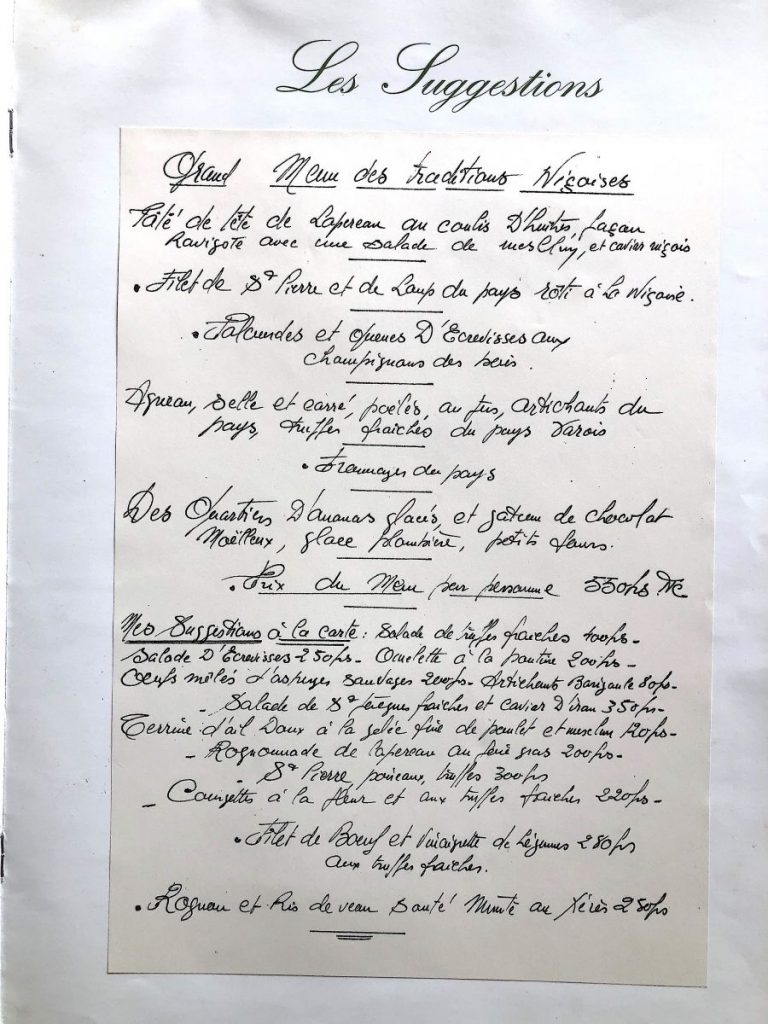 Les Suggestions
Grand Menu des traditions Niçoises
Pâté de tête de Lapereau au coulis D'huitres, façon
Ravigote avec une salade de mesclun, et cavier niçois
• Filet de St Pierre et de Loup du pays rôti à la Niçoise.
• Palourdes et Queues D'Ecrevisses aux
champignons des bois.
Agneau, selle et carré, poêlés, au jus, artichauts du
pays, truffes fraiches du pays Varois
• Fromages du pays
Des Quartiers D'ananas glacés, et gâteau de chocolat
Moëlleux, glace plombière, petits fours.
• Prix du Menu par personne 550frs
Mes Suggestions à la carte : Salade de truffes fraiches 400frs-
Salade D'Ecrevisses 250frs- Omelette à la poutine 200frs-
Oeufs mêlés d'asperges sauvages 200frs- Artichauts Barigoule 80frs-
- Salade de St Jacques fraiches et cavier D'iran 350frs-
Terrine d'ail Doux à la gelée fine de poulet et mesclun 120frs-
- Rognonnade de lapereau au foie gras 200frs-
- St Pierre poireaux, truffes 300frs
- Courgettes à la fleur et aux truffes fraiches 220frs-
• Filet de Boeuf et Vinaigrette de Légumes 280frs
aux truffes fraiches.
• Rognon et Ris de veau Santé Minute au Xérès 250frs